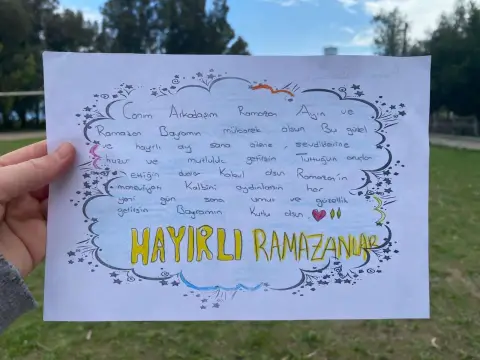 Canım Arkadaşım Ramazan Ayın ve
Ramazan Bayramın mübarek olsun Bu güzel
ve hayırlı ay sana ailene, sevdiklerine
huzur ve mutluluk getirsin Tuttuğun oruçlar
ettiğin dualar Kabul olsun Ramazan'ın
maneviyatı Kalbini aydınlatsın her
yeni gün sana umut ve güzellik
getirsin Bayramın Kutlu olsun
HAYIRLI RAMAZANLAR